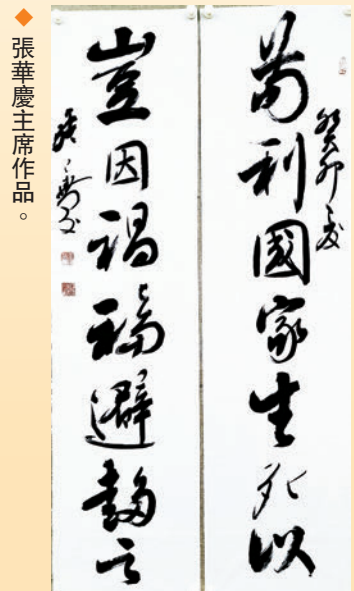 苟利國家生死以
癸卯之夏
豈因禍福避趨之
◆張華慶主席作品。